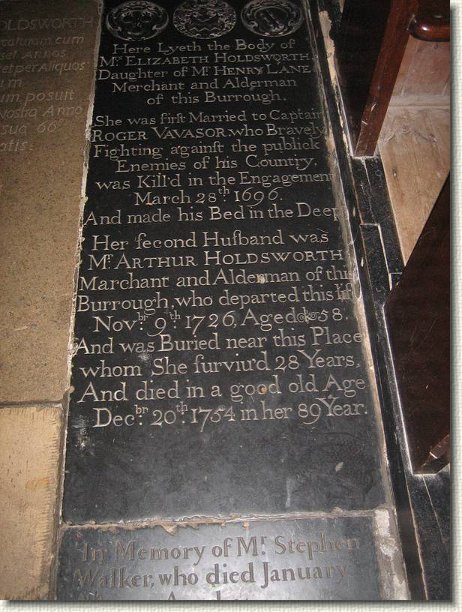 HOLDSWORTH
HOLDSWORTH
Here Lyeth the Body of
Mrs. ELIZABETH HOLDSWORTH,
Daughter of Mr. HENRY LANE
Merchant and Alderman
of this Burrough.
She was first Married to Captain
ROGER VAVASOR, who Bravely
Fighting against the publick
Enemies of his Country,
was Kill'd in the Engagement
March 28th 1696.
And made his Bed in the Deep
Her second Husband was
Mr. ARTHUR HOLDSWORTH
Marchant and Alderman of this
Burrough, who departed this life
Novbr. 9th. 1726, Aged 58.
And was Buried near this Place
whom She surviu'd 28 Years,
And died in a good old Age
Decbr. 20th. 1754 in her 89 Year.
In Memory of Mr. Stephen
Walker, who died January